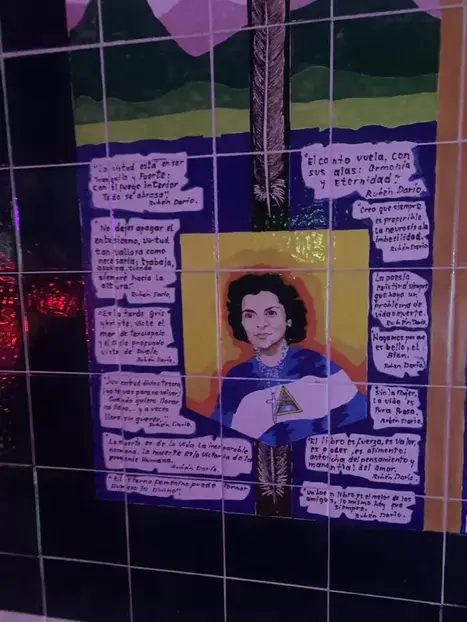 "La virtud está en ser
tranquilo y fuerte:
con el fuego interior
todo se abrasa".
Rubén Darío.
No dejes apagar el
entusiasmo, virtud
tan valiosa como
necesaria; trabaja,
aspira, tiende
siempre hacia la
altura".
Rubén Darío.
"En la tarde gris
y triste, viste el
mar de terciopelo
y el cielo profundo
viste de duelo.
Rubén Darío.
Juventud divino tesoro
¡ya te vas para no volver!
Cuando quiero llorar
no lloro... y a veces
lloro sin querer."
Rubén Darío.
La muerte es de la vida la inseparable
hermana. La muerte es la victoria de la
Rubén Darío.
"El eterno femenino puede tornar
humano lo divino"
"El canto vuela, con
sus alas: Armonía
y Eternidad"
Rubén Darío.
"Creo que siempre
es preferible
la neurosis a la
imbecilidad.
Rubén Darío.
La poesía
existirá siempre
que haya un
problema de
vida o muerte.
Rubén Darío.
Hagamos porque
es bello, el
Bien.
Rubén Darío.
Sin la mujer,
la vida es
Pura Prosa.
Rubén Darío.
"El libro es fuerza, es valor,
es poder, es alimento;
antorcha del pensamiento y
manantial del amor.
Rubén Darío.
"Un buen libro es el mejor de los
amigos, lo mismo hoy que
siempre.
Rubén Darío.